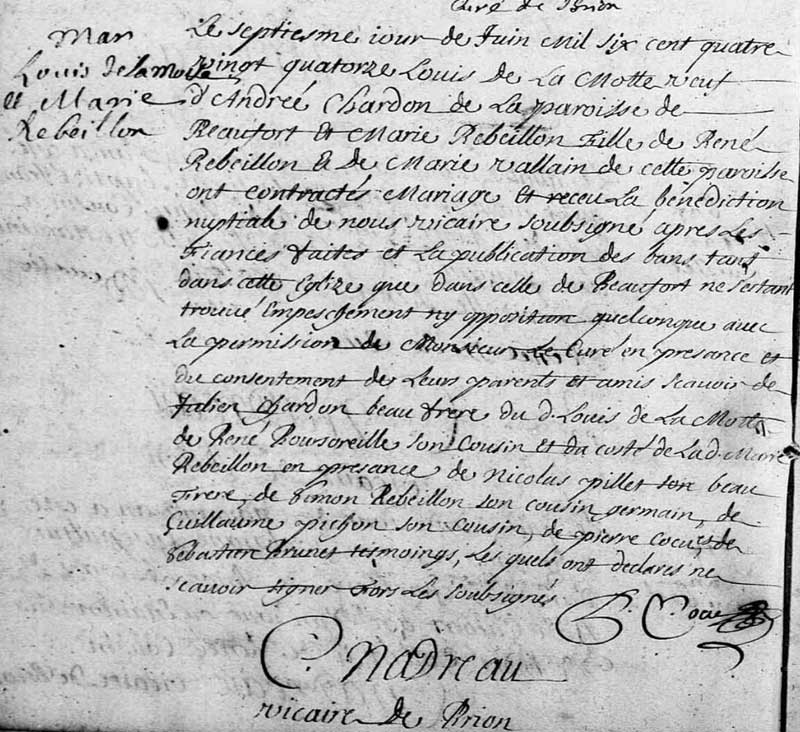 Curé de Brion
Mar
Louis de la Motte
et Marie
Rebeillon
Le septiesme iour de Juin Mil six cent quatre
vingt quatorze Louis de La Motte veuf
d'Andreé Chardon de La paroisse de
Beaufort et Marie Rebeillon Fille de René
Rebeillon et de Marie vallain de cette paroisse
ont contractés Mariage et receu La benediction
nuptiale de nous vicaire soubsigné apres Les
Fiances faites et La publication des bans tant
dans cette Eglize que dans celle de Beaufort ne s'estant
trouvé Empeschement ny opposition quelconque avec
La permission de Monsieur Le Curé en presance et
du consentement des Leurs parents et amis scavoir de
Julien Chardon beau frere du d. Louis de La Motte
de René Boursoreille son Cousin et du costé de La d. Marie
Rebeillon en presance de Nicolas pillet son beau
Frere, de Simon Rebeillon son cousin germain, de
Guillaume pichon son Cousin, de pierre Cocu, et de
Sebastian Brunet tesmoings, Les quels ont declarés ne
scavoir signer Fors Les soubsignés
P. Cocu
C. Nadreau
vicaire de Brion